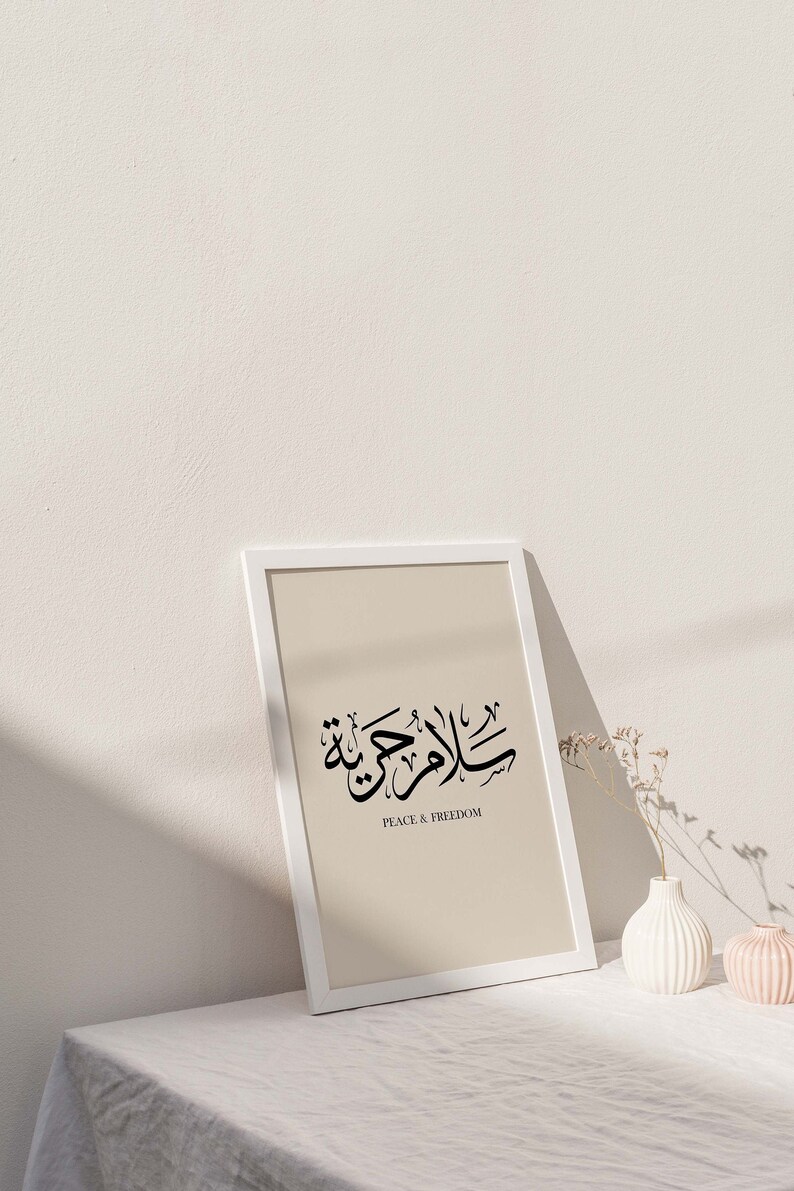 سلام حرية
PEACE & FREEDOM